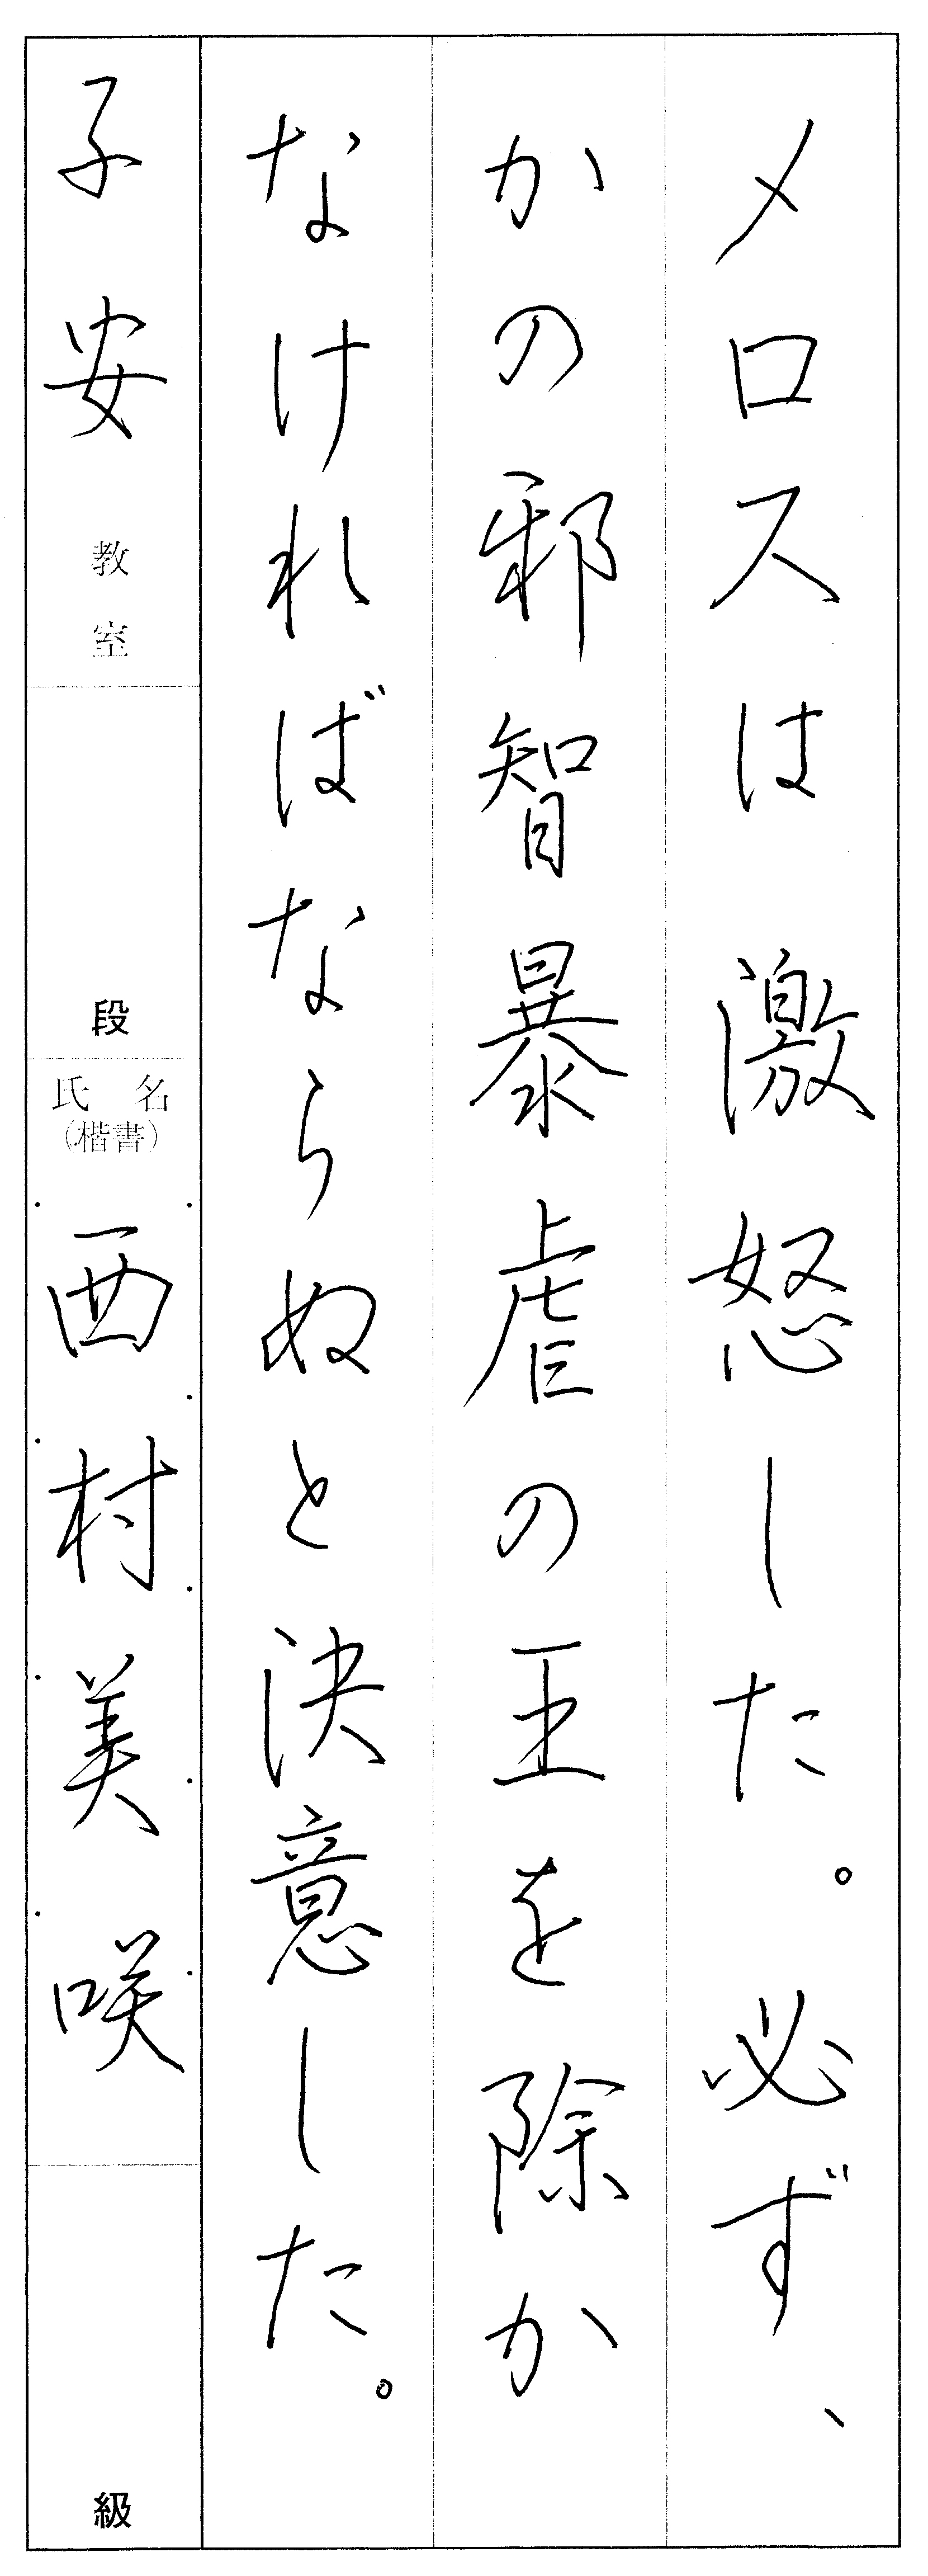 メロスは激怒した。必ず、
かの邪智暴虐の王を除か
なければならぬと決意した。
子安教室
段
氏名
(楷書)
西村美咲
級